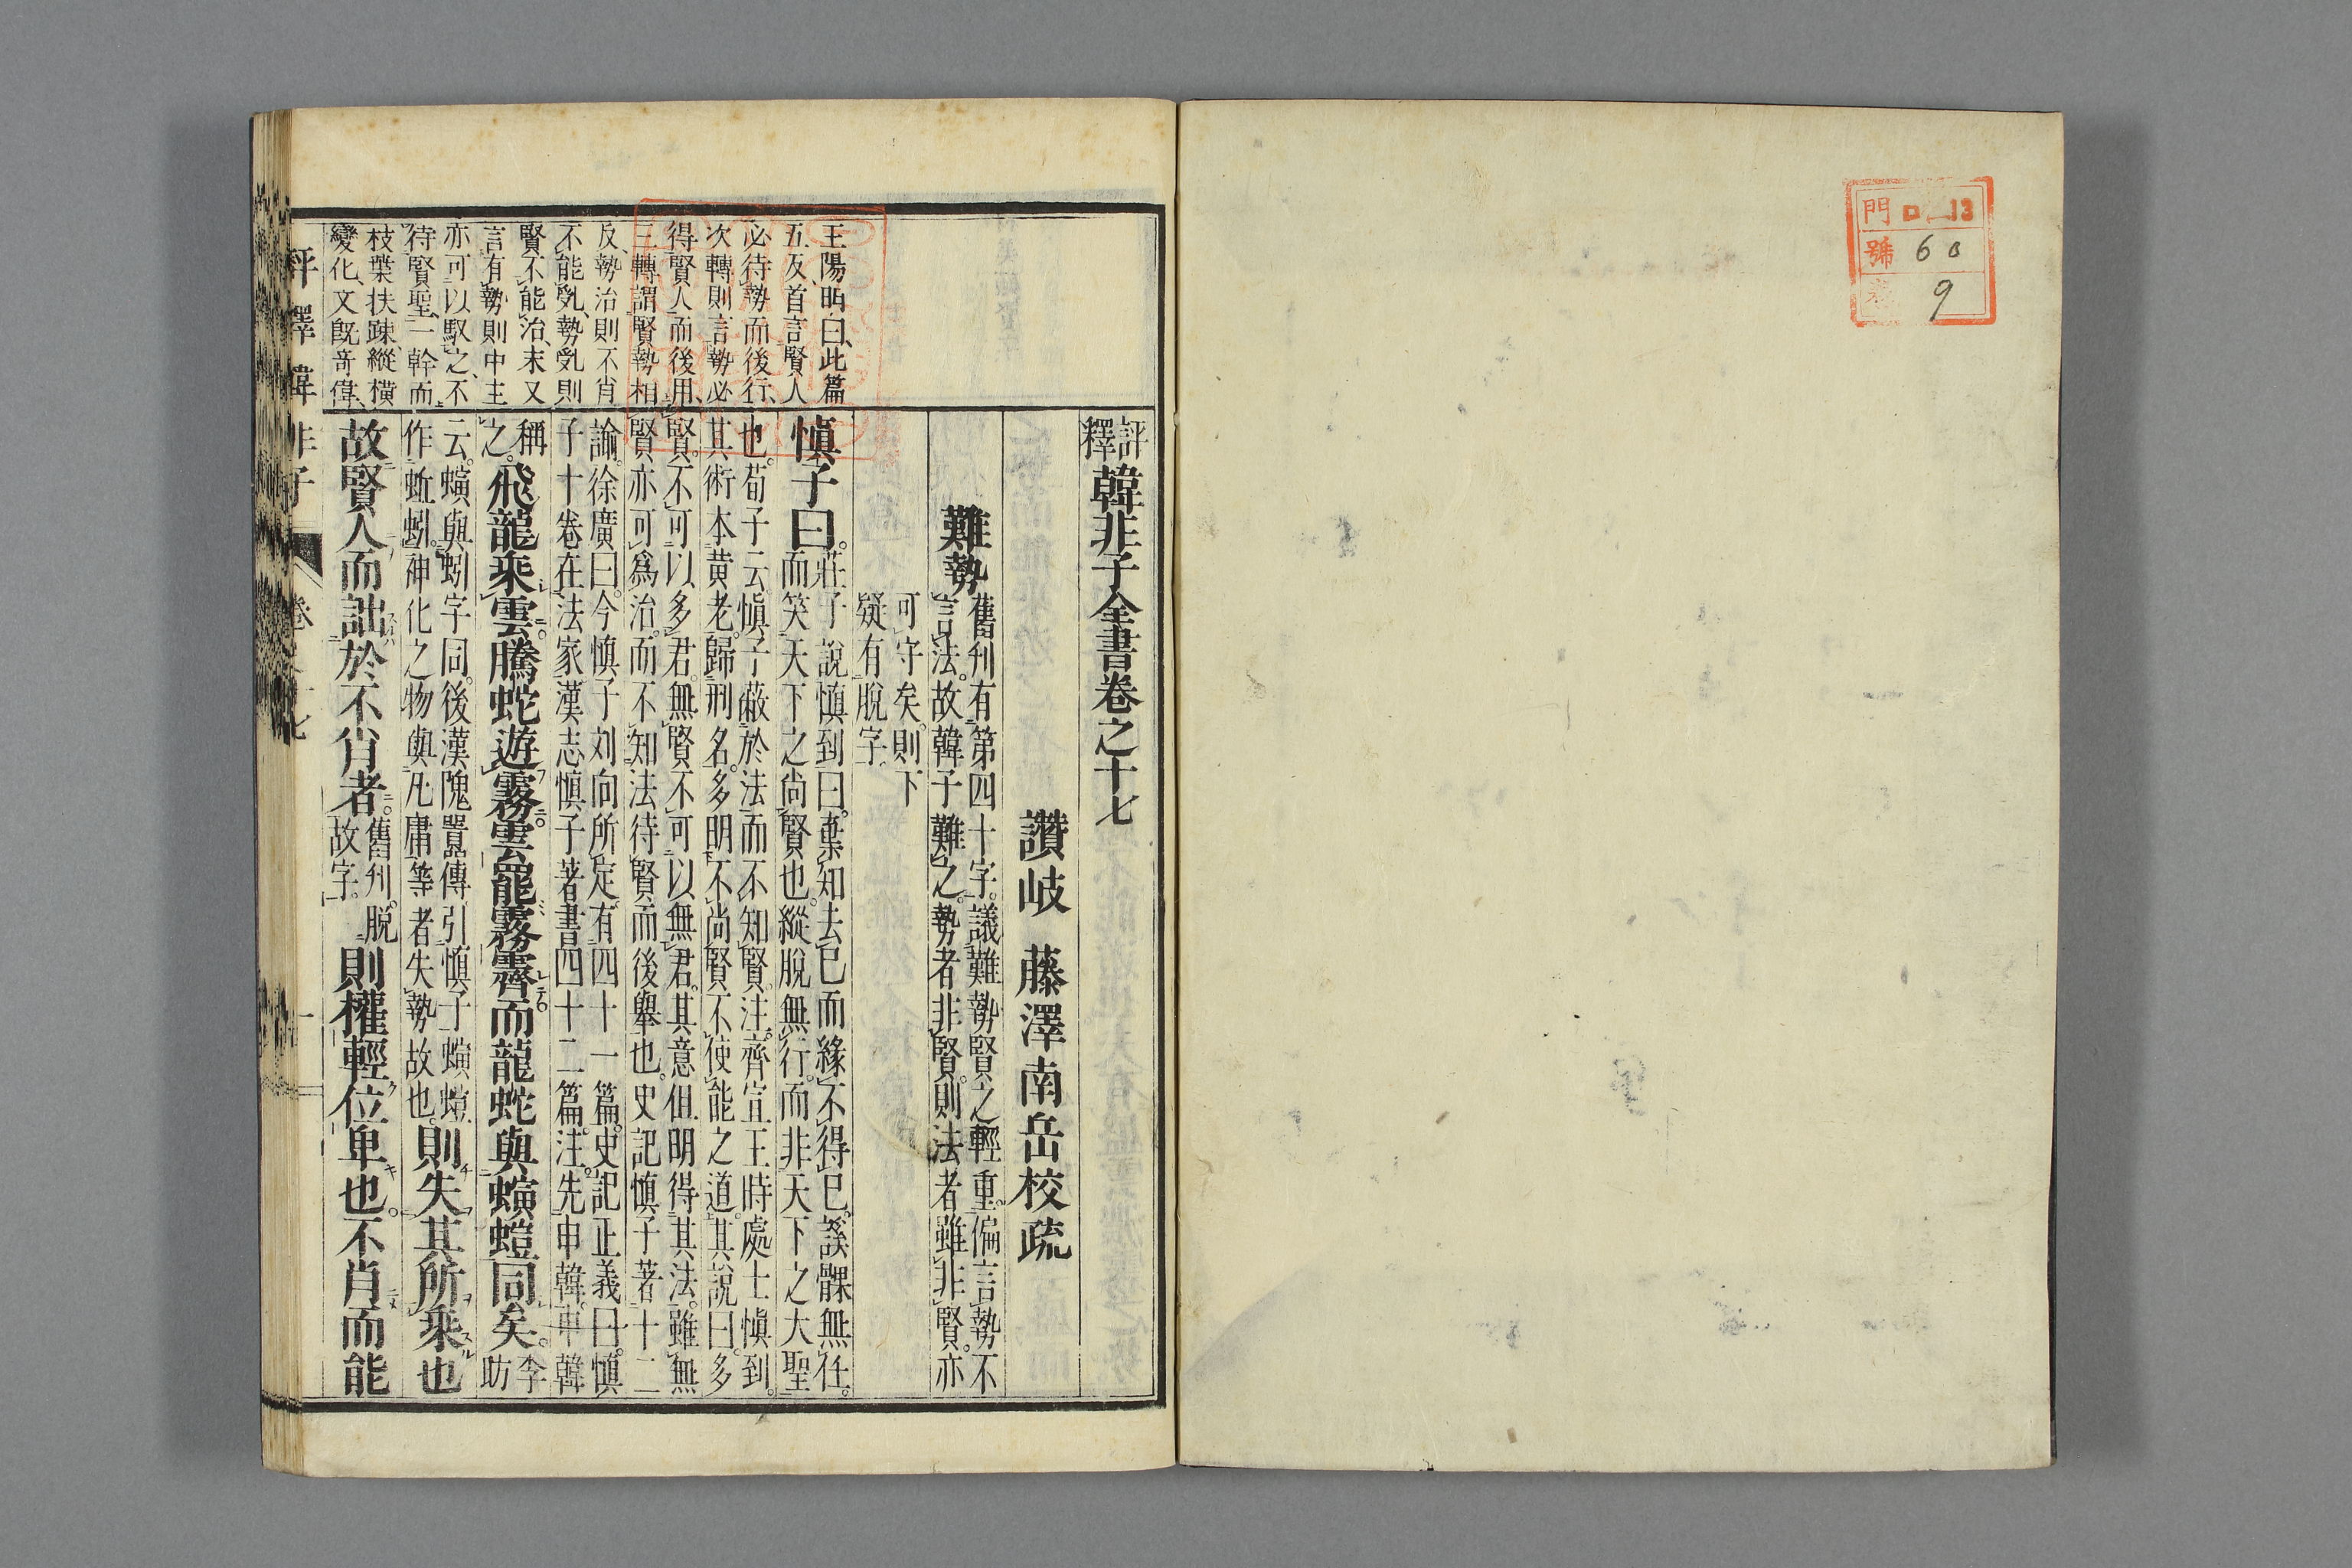 門 ロ 13
號 60
巻 9
評釋韓非子全書卷之十七
讚岐 藤澤南岳校疏
難勢
舊刋有第四十字。議難勢賢之輕重。偏言勢不
言法。故韓子難之。勢者非賢。則法者雖非賢。亦
可守矣。則下
疑有脫字。
愼子曰。
莊子說愼到曰。棄知去已而緣不得已。謑髁無任。
而笑天下之尚賢也。縱脫無行。而非天下之大聖
也。荀子云愼子蔽於法而不知賢。注。齊宣王時處士愼到。
其術本黃老。歸刑名。多明不尚賢不使能之道。其說曰。多
賢。不可以多君。無賢不可以無君。其意但明得其法。雖無
賢亦可爲治。而不知法待賢而後擧也。史記愼子著十二
論。徐廣曰。今愼子刘向所定。有四十一篇。史記正義曰。愼
子十卷在法家。漢志愼子著書四十二篇。注。先申韓。申韓
稱
之。
飛龍乘雲。騰蛇遊霧。雲罷霧霽。而龍蛇與螾螘同矣。
李
助
云。螾與蚓字同。後漢隗囂傳引愼子螾螘
作蚯蚓。神化之物與凡庸等者失勢故也。
則失其所乘也
故賢人而詘於不肖者。
舊刋。脫
故字。
則權輕位卑也。不肖而能
王陽明曰、此篇
五反、首言賢人
必待勢而後行、
次轉則言勢必
得賢人而後用、
三轉謂賢勢相
反、勢治則不肖
不能乱、勢乱則
賢不能治、末又
言有勢則中主
亦可以馭之、不
待賢聖、一幹而
枝葉扶踈、縱橫
變化、文旣奇偉、
評釋韓非子 卷之十七 一